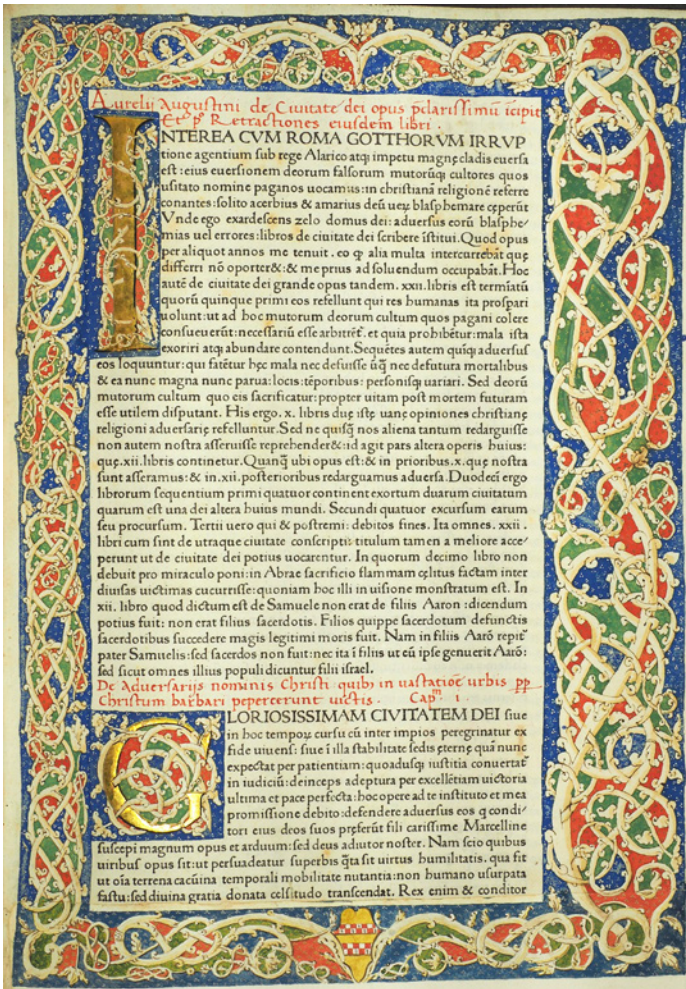 Aurelij Augustini de Ciuitate dei opus p̄clarissimū īcipit
Et p̄º Retractiones eiusdem libri .
INTEREA CVM ROMA GOTTHORVM IRRVP
tione agentium sub rege Alarico atq; impetu magnę cladis euersa
est: eius euersionem deorum falsorum mutorūq; cultores quos
usitato nomine paganos uocamus: in christianā religionē referre
conantes: solito acerbius & amarius deū uerū blasphemare cęperūt
Vnde ego exardescens zelo domus dei: aduersus eorū blasphe-
mias uel errores: libros de ciuitate dei scribere īstitui. Quod opus
per aliquot annos me tenuit. eo ꝙ alia multa intercurrebāt quę
differri nō oporter&: & me prius ad soluendum occupabāt. Hoc
autē de ciuitate dei grande opus tandem .xxii. libris est termīatū
quorū quinque primi eos refellunt qui res humanas ita prospari
uolunt: ut ad hoc mutorum deorum cultum quos pagani colere
consueuerūt: necessariū esse arbitrēt̄. et quia prohibētur: mala ista
exoriri atq; abundare contendunt. Sequētes autem quīq; aduersus
eos loquuntur: qui fatētur hęc mala nec defuisse ūq̄ nec defutura mortalibus
& ea nunc magna nunc parua: locis: tēporibus: personisq; uariari. Sed deorū
mutorum cultum quo eis sacrificatur: propter uitam post mortem futuram
esse utilem disputant. His ergo .x. libris duę istę uanę opiniones christianę
religioni aduersarię refelluntur. Sed ne quisq̄ nos aliena tantum redarguisse
non autem nostra asseruisse reprehender&: id agit pars altera operis huius:
quę .xii. libris continetur. Quanq̄ ubi opus est: & in prioribus .x. quę nostra
sunt asseramus: & in .xii. posterioribus redarguamus aduersa. Duodecī ergo
librorum sequentium primi quatuor continent exortum duarum ciuitatum
quarum est una dei altera huius mundi. Secundi quatuor excursum earum
seu procursum. Tertii uero qui & postremi: debitos fines. Ita omnes .xxii.
libri cum sint de utraque ciuitate conscripti: titulum tamen a meliore acce-
perunt ut de ciuitate dei potius uocarentur. In quorum decimo libro non
debuit pro miraculo poni: in Abrae sacrificio flammam cęlitus factam inter
diuisas uictimas cucurrisse: quoniam hoc illi in uisione monstratum est. In
xii. libro quod dictum est de Samuele non erat de filiis Aaron: dicendum
potius fuit: non erat filius sacerdotis. Filios quippe sacerdotum defunctis
sacerdotibus succedere magis legitimi moris fuit. Nam in filiis Aarō repit̄
pater Samuelis: sed sacerdos non fuit: nec ita ī filiis ut eū ipse genuerit Aarō:
sed sicut omnes illius populi dicuntur filii israel.
De Aduersarijs nominis Christi quib; in uastatiōe urbis pp
Christum barbari pepercerunt uictis. Capᵐ .i.
GLORIOSISSIMAM CIVITATEM DEI siue
in hoc tempor; cursu cū inter impios peregrinatur ex
fide uiuens: siue ī illa stabilitate sedis eternę quā nunc
expectat per patientiam: quoadusq; iustitia conuertat̄
in iudiciū: deinceps adeptura per excellētiam uictoria
ultima et pace perfecta: hoc opere ad te instituto et mea
promissione debito: defendere aduersus eos q condi-
tori eius deos suos pręferūt fili carissime Marcelline
suscepi magnum opus et arduum: sed deus adiutor noster. Nam scio quibus
uiribus opus sit: ut persuadeatur superbis q̄ta sit uirtus humilitatis. qua fit
ut oīa terrena cacūina temporali mobilitate nutantia: non humano usurpata
fastu: sed diuina gratia donata celsitudo transcendat. Rex enim & conditor